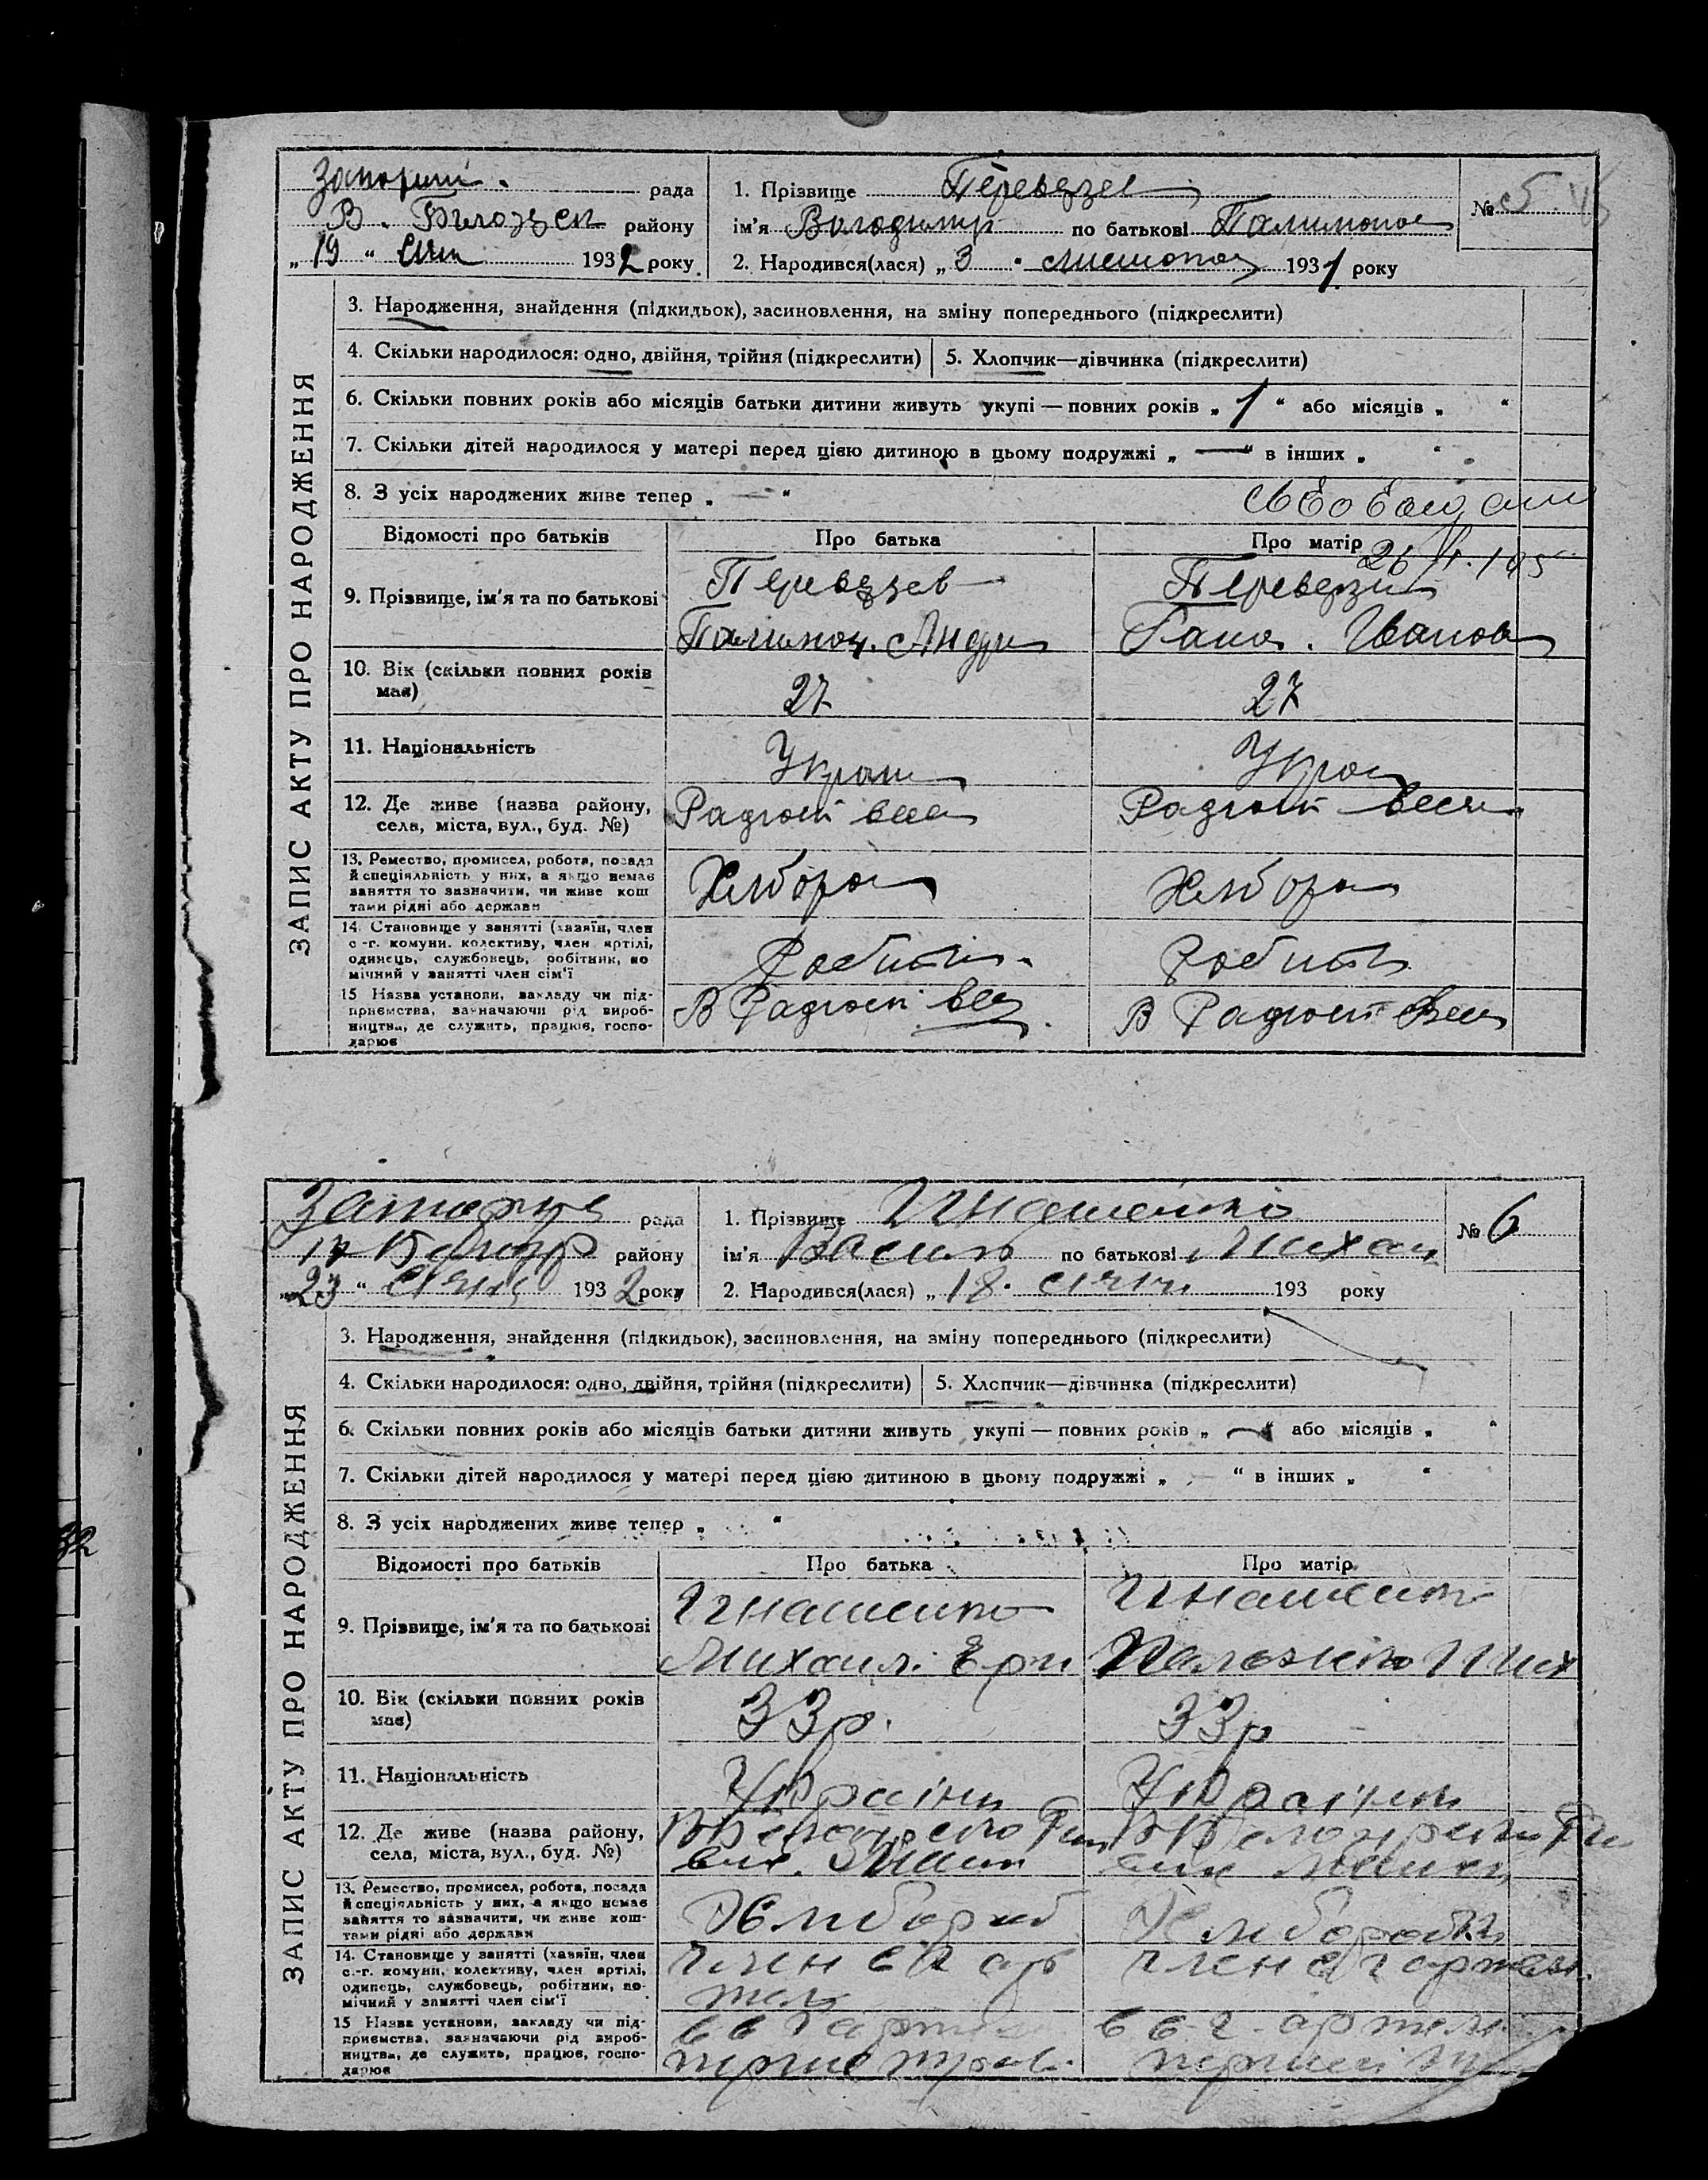 рада
В. Білозірк району
„ 19 “ січн 1932 року
1. Прізвище Перевезев
ім'я Володимир по батькові Палимонов
2. Народився(лася) „ 3 “ листопад 1931 року
№ 5
ЗАПИС АКТУ ПРО НАРОДЖЕННЯ
3. Народження, знайдення (підкидьок), засиновлення, на зміну попереднього (підкреслити)
4. Скільки народилося: одно, двійня, трійня (підкреслити)
5. Хлопчик—дівчинка (підкреслити)
6. Скільки повних років або місяців батьки дитини живуть укупі — повних років „ 1 “ або місяців „ “
7. Скільки дітей народилося у матері перед цією дитиною в цьому подружжі „ — “ в інших „ “
8. З усіх народжених живе тепер „ — “
Відомості про батьків
Про батька
Про матір
9. Прізвище, ім'я та по батькові
Перевезев
Палимон. Андр
Перевези
Ганна. Іванов
10. Вік (скільки повних років має)
27
27
11. Національність
Україн
Украї
12. Де живе (назва району, села, міста, вул., буд. №)
Радгосп
Радгосп
13. Ремество, промисел, робота, посада й спеціяльність у них, а якщо немає заняття то зазначити, чи живе кош тами рідні або держави
Хлібороб
Хлібороб
14. Становище у занятті (хазяїн, член с.-г. комуни. колективу, член артілі, одинець, службовець, робітник, по мічний у занятті член сім'ї
Робітн
Робітн
15 Назва установи, закладу чи під-
приємства, зазначаючи рід вироб-
ництва, де служить, працює, госпо-
дарює
В Радгосп
В Радгосп
рада
району
„ 23 “ січня 1932 року
1. Прізвище Инашенко
ім'я Василь по батькові Михай
2. Народився(лася) „ 18. січня 193 року
№ 6
ЗАПИС АКТУ ПРО НАРОДЖЕННЯ
3. Народження, знайдення (підкидьок), засиновлення, на зміну попереднього (підкреслити)
4. Скільки народилося: одно, двійня, трійня (підкреслити)
5. Хлопчик—дівчинка (підкреслити)
6. Скільки повних років або місяців батьки дитини живуть укупі — повних років „ — “ або місяців „ “
7. Скільки дітей народилося у матері перед цією дитиною в цьому подружжі „ “ в інших „ “
8. З усіх народжених живе тепер „ “
Відомості про батьків
Про батька
Про матір
9. Прізвище, ім'я та по батькові
Инашенко
Михаил
Инашенко
10. Вік (скільки повних років має)
33р.
33р
11. Національність
Україн
Україн
12. Де живе (назва району, села, міста, вул., буд. №)
13. Ремество, промисел, робота, посада й спеціяльність у них, а якщо немає заняття то зазначити, чи живе кош- тами рідні або держави
Хлибороб
Хлиборобк
14. Становище у занятті (хазяїн, член с.-г. комуни, колективу, член артілі, одинець, службовець, робітник, по- мічний у занятті член сім'ї
член с г ар
тели
член с г артели
15 Назва установи, закладу чи під-
приємства, зазначаючи рід вироб-
ництва, де служить, працює, госпо-
дарює
в с г артел
в с-г. артели